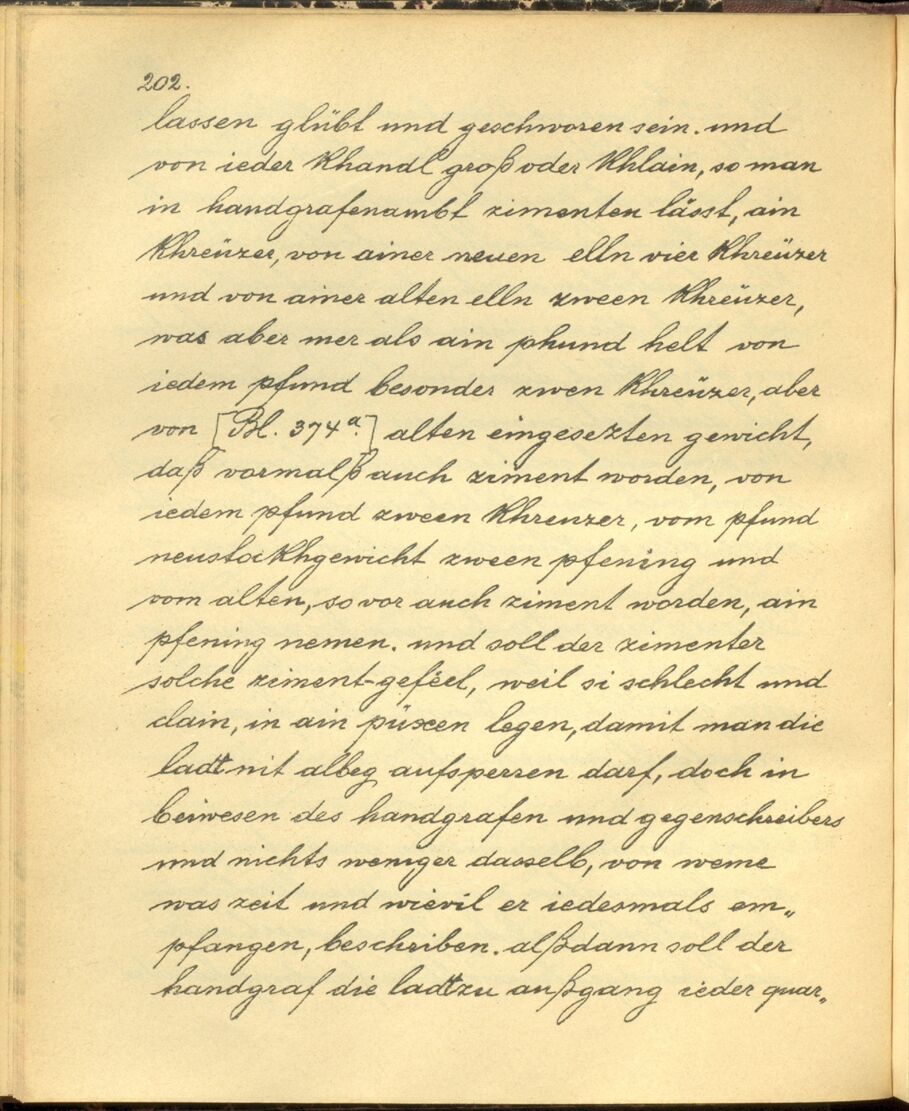 202.
lassen glübt und geschworen sein. und
von ieder Khandl groß oder Khlain, so man
in handgrafenambt zimenten lässt, ain
Khreüzer, von ainer neuen elln vier Khreüzer
und von ainer alten elln zween Khreüzer,
was aber mer als ain phund helt von
iedem pfund besonder zwen Khreüzer, aber
von [Bl. 374a.] alten eingesezten gewicht,
daß vormalß auch ziment worden, von
iedem pfund zween Khreuzer, vom pfund
neustockhgewicht zween pfening und
vom alten, so vor auch ziment worden, ain
pfening nemen. und soll der zimenter
solche ziment-geféel, weil si schlecht und
clain, in ain püxen legen, damit man die
ladt nit albeg aufsperren darf, doch in
beiwesen des handgrafen und gegenschreibers
und nichts weniger dasselb, von weme
was zeit und wievil er iedesmals em„
pfangen, beschriben. alßdann soll der
handgraf die ladt zu außgang ieder quar„